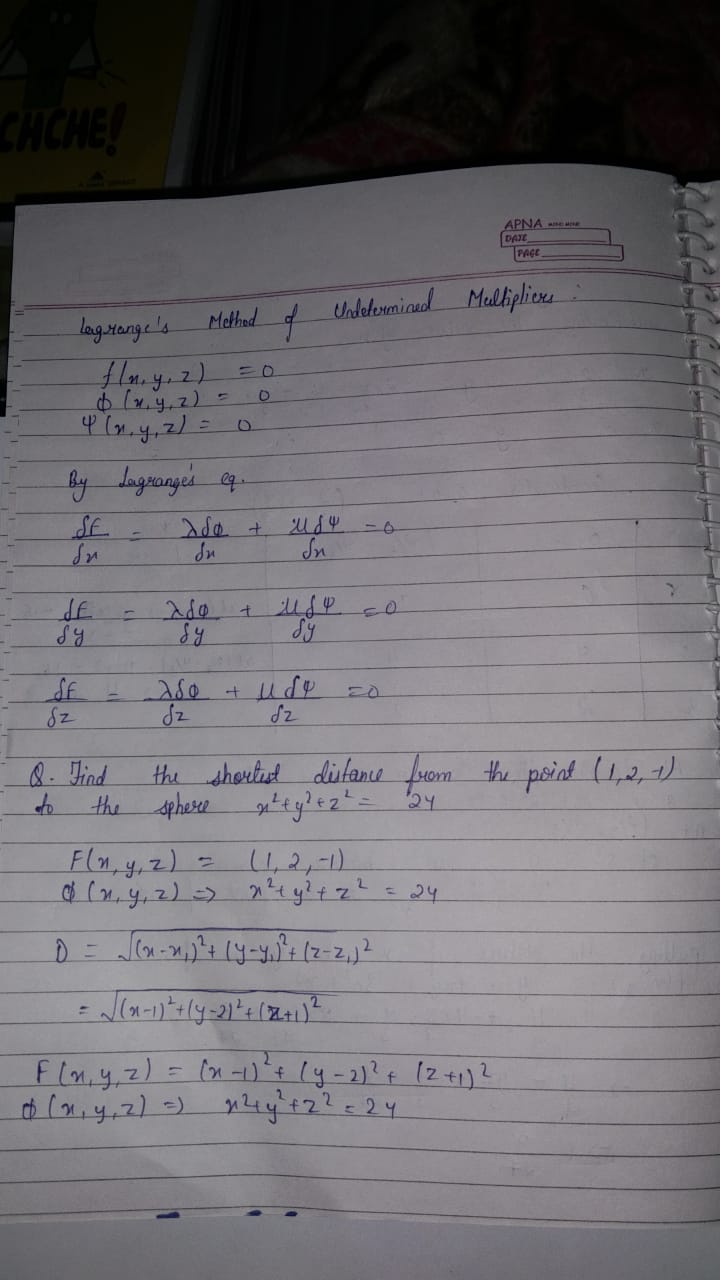 CHCHE!
APNA
DATE
PAGE
Lagrange's Method of Undetermined Multipliers :
f(x, y, z) = 0
ϕ (x, y, z) = 0
Ψ (x, y, z) = 0
By Lagrange's eq.
δF/δx = λδϕ/δx + μδΨ/δx = 0
δF/δy = λδϕ/δy + μδΨ/δy = 0
δF/δz = λδϕ/δz + μδΨ/δz = 0
Q. Find the shortest distance from the point (1, 2, -1)
to the sphere x² + y² + z² = 24
F(x, y, z) = (1, 2, -1)
ϕ (x, y, z) => x² + y² + z² = 24
D = √(x-x₁)² + (y-y₁)² + (z-z₁)²
= √(x-1)² + (y-2)² + (z+1)²
F(x, y, z) = (x-1)² + (y-2)² + (z+1)²
ϕ (x, y, z) => x² + y² + z² = 24